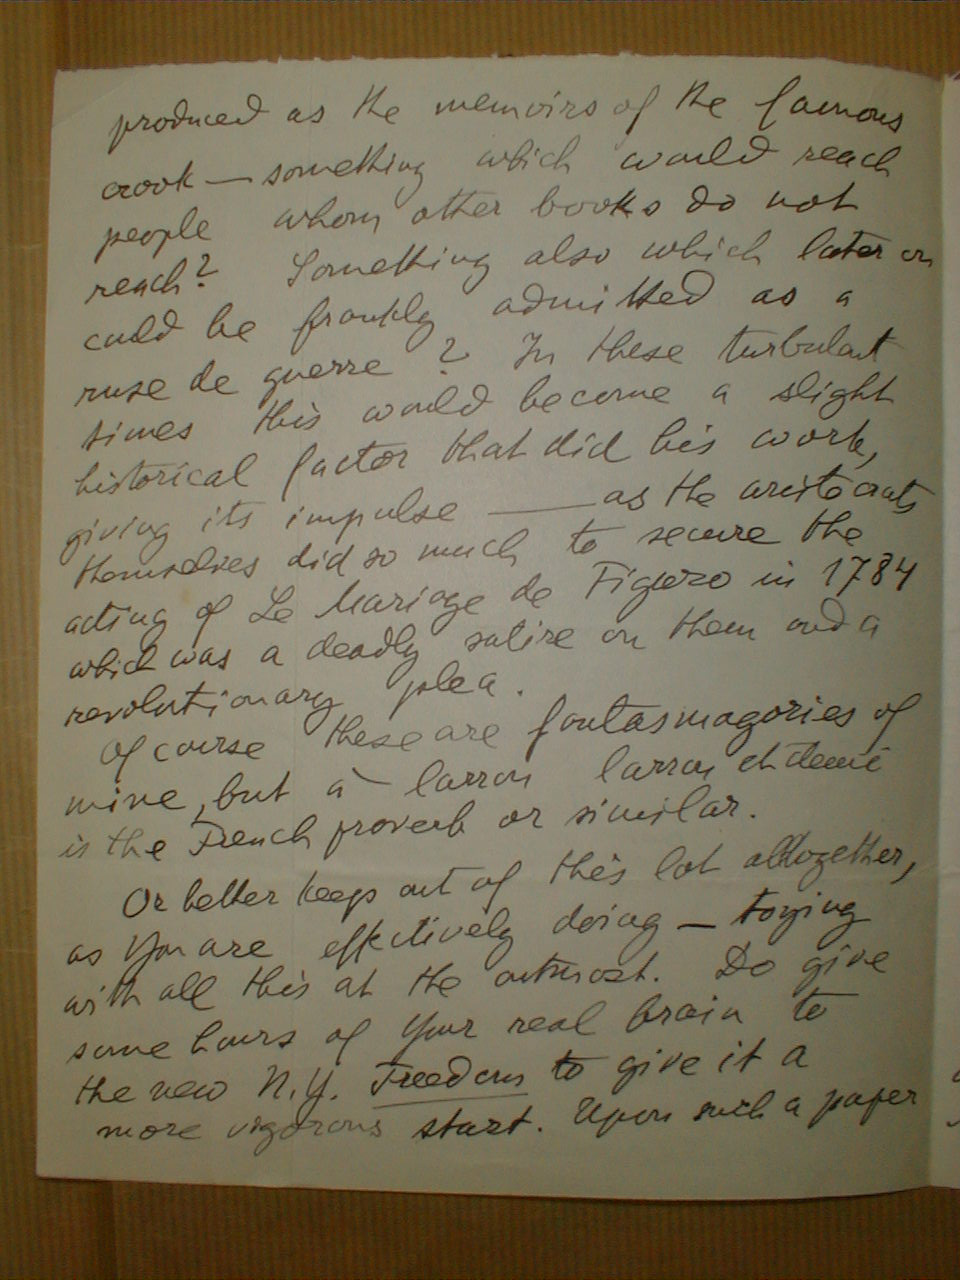 produced as the memoirs of the famous
crook — something which would reach
people whom other books do not
reach? Something also which later on
could be frankly admitted as a
ruse de guerre? In these turbulent
times this would become a slight
historical factor that did his work,
giving its impulse — as the aristocrats
themselves did so much to secure the
acting of Le Mariage de Figaro in 1784
which was a deadly satire on them and a
revolutionary plea.
Of course these are fantasmagories of
mine, but à larron larron et demi
is the French proverb or similar.
Or better keep out of this lot altogether,
as You are effectively doing — toying
with all this at the outmost. Do give
some hours of Your real brain to
the new N.Y. Freedom to give it a
more vigorous start. Upon such a paper